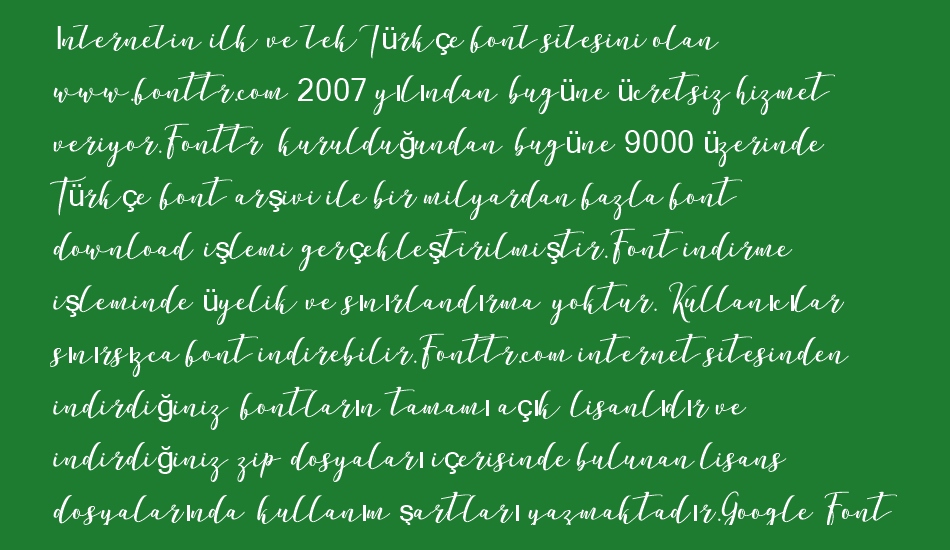 Internetin ilk ve tek Türkçe font sitesini olan
www.fonttr.com 2007 yılından bugüne ücretsiz hizmet
veriyor.Fonttr kurulduğundan bugüne 9000 üzerinde
Türkçe font arşivi ile bir milyardan fazla font
download işlemi gerçekleştirilmiştir.Font indirme
işleminde üyelik ve sınırlandırma yoktur. Kullanıcılar
sınırsızca font indirebilir.Fonttr.com internet sitesinden
indirdiğiniz fontların tamamı açık lisanlıdır ve
indirdiğiniz zip dosyaları içerisinde bulunan lisans
dosyalarında kullanım şartları yazmaktadır.Google Font